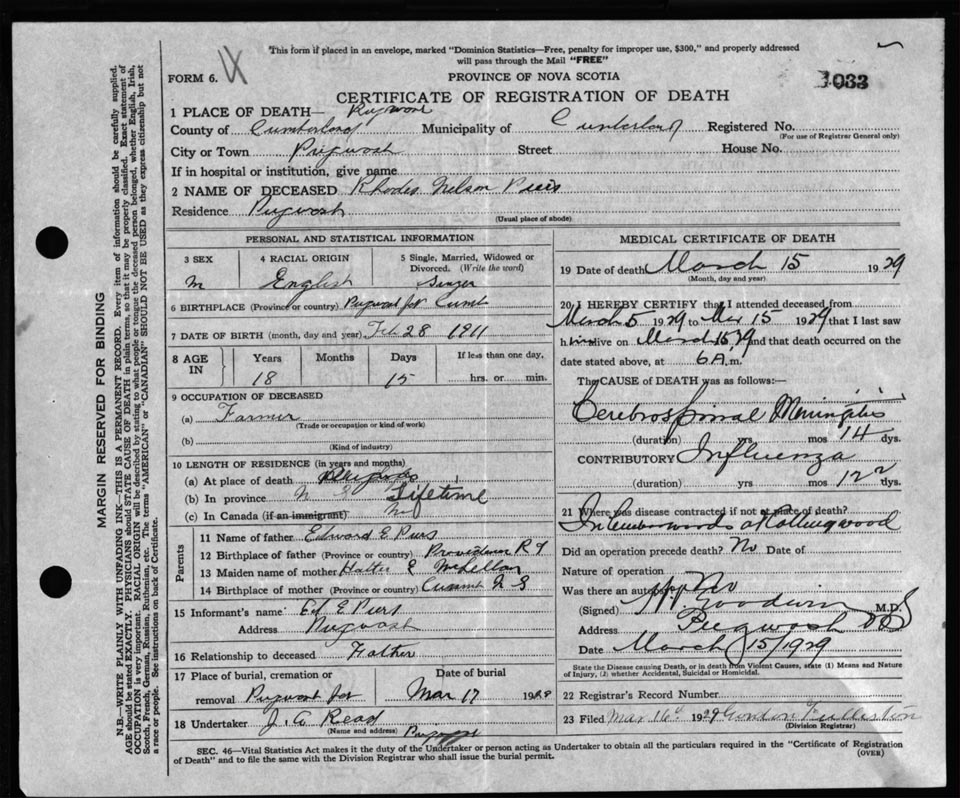 This form if placed in an envelope, marked "Dominion Statistics—Free, penalty for improper use, $300," and properly addressed
will pass through the Mail "FREE"
FORM 6.
PROVINCE OF NOVA SCOTIA
1033
CERTIFICATE OF REGISTRATION OF DEATH
1 PLACE OF DEATH—
County of Cumberland Municipality of Cumberland Registered No.
(For use of Registrar General only)
City or Town Pugwash Street House No.
If in hospital or institution, give name
2 NAME OF DECEASED Rhodes Nelson Piers
Residence Pugwash
(Usual place of abode)
PERSONAL AND STATISTICAL INFORMATION
3 SEX 4 RACIAL ORIGIN 5 Single, Married, Widowed or Divorced. (Write the word)
M English
6 BIRTHPLACE (Province or country) Pugwash Cumb
7 DATE OF BIRTH (month, day and year) Feb 28 1911
8 AGE IN Years Months Days If less than one day,
18 15 hrs. or min.
9 OCCUPATION OF DECEASED
(a) Farmer
(Trade or occupation or kind of work)
(b)
(Kind of industry)
10 LENGTH OF RESIDENCE (in years and months)
(a) At place of death
(b) In province N S Lifetime
(c) In Canada (if an immigrant)
Parents
11 Name of father Edward E Piers
12 Birthplace of father (Province or country) R I
13 Maiden name of mother E McLellan
14 Birthplace of mother (Province or country) N S
15 Informant's name Ed E Piers
Address Pugwash
16 Relationship to deceased Father
17 Place of burial, cremation or removal Date of burial
Pugwash Mar 17 192
18 Undertaker J. A. Read
(Name and address)
MEDICAL CERTIFICATE OF DEATH
19 Date of death March 15 1929
(Month, day and year)
20 I HEREBY CERTIFY that I attended deceased from
March 5 1929 to Mar 15 1929 that I last saw
him alive on March 15 29 and that death occurred on the
date stated above, at 6 A.m.
The CAUSE OF DEATH was as follows:—
Cerebrospinal Meningitis
(duration) yrs mos 14 dys.
CONTRIBUTORY Influenza
(duration) yrs mos 12 dys.
21 Where was disease contracted if not at place of death?
In lumberwoods at Collingwood
Did an operation precede death? No Date of
Nature of operation
Was there an autopsy No
(Signed) Goodwin M.D.
Address Pugwash N S
Date March 15/1929
State the Disease causing Death, or in death from Violent Causes, state (1) Means and Nature
of Injury, (2) whether Accidental, Suicidal or Homicidal.
22 Registrar's Record Number
23 Filed Mar 16 1929 Gordon Fullerton
(Division Registrar)
SEC. 46—Vital Statistics Act makes it the duty of the Undertaker or person acting as Undertaker to obtain all the particulars required in the "Certificate of Registration
of Death" and to file the same with the Division Registrar who shall issue the burial permit.
(OVER)
MARGIN RESERVED FOR BINDING
N.B.—WRITE PLAINLY WITH UNFADING INK—THIS IS A PERMANENT RECORD. Every item of information should be carefully supplied.
AGE should be stated EXACTLY. PHYSICIANS should STATE CAUSE OF DEATH in plain terms, so that it may be properly classified. Exact statement of
OCCUPATION is very important. RACIAL ORIGIN will be described by stating to what people or tongue the deceased person belonged, whether English, Irish,
Scotch, French, German, Russian, Ruthenian, etc. The terms "AMERICAN" or "CANADIAN" SHOULD NOT BE USED as they express citizenship but not
a race or people. See instructions on back of Certificate.